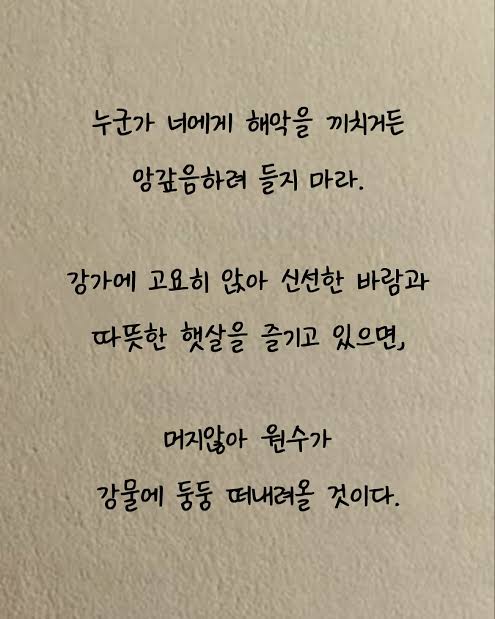 누군가 너에게 해악을 끼치거든
앙갚음하려 들지 마라.
강가에 고요히 앉아 신선한 바람과
따뜻한 햇살을 즐기고 있으면,
머지않아 원수가
강물에 둥둥 떠내려올 것이다.